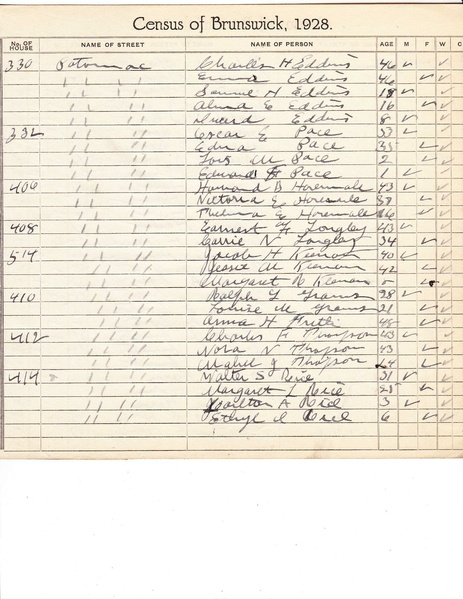 Census of Brunswick, 1928.
No. OF HOUSE NAME OF STREET NAME OF PERSON AGE M F W C
330 Potomac Charles H Eddins 46 ✓ ✓
" " " Emma Eddins 46 ✓ ✓
" " " Samuel H Eddins 18 ✓ ✓
" " " Alma E Eddins 16 ✓ ✓
" " " Eddins 8 ✓ ✓
332 " " " Oscar E Pace 33 ✓ ✓
" " " Edna Pace 35 ✓ ✓
" " " Lois M Pace 2 ✓ ✓
" " " Edward H Pace 1 ✓ ✓
406 " " " Howard B 43 ✓ ✓
" " " Victoria E ✓ ✓
" " " Thelma E 16 ✓ ✓
408 " " " Earnest Longley 43 ✓ ✓
" " " Carrie V Longley 34 ✓ ✓
514 " " " Jacob H 40 ✓ ✓
" " " Bessie M 42 ✓ ✓
" " " Margaret ✓ ✓
410 " " " Ralph L Grams 28 ✓ ✓
" " " Louise M Grams 21 ✓ ✓
" " " Anna H ✓ ✓
412 " " " Charles F Thompson 43 ✓ ✓
" " " Nora V Thompson 43 ✓ ✓
" " " Mabel J Thompson 24 ✓ ✓
414 " " " Walter S Rice 31 ✓ ✓
" " " Margaret L Rice ✓ ✓
" " " Carlton A Rice 3 ✓ ✓
" " " Ethyl I Rice 6 ✓ ✓